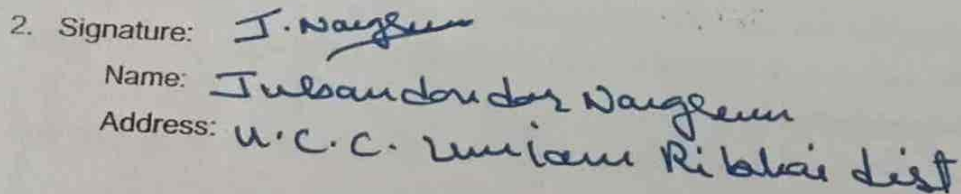 2. Signature: J. Nongleum
Name: Julsandondor Nongleum
Address: U.C.C. Umiam Ribhoi dist